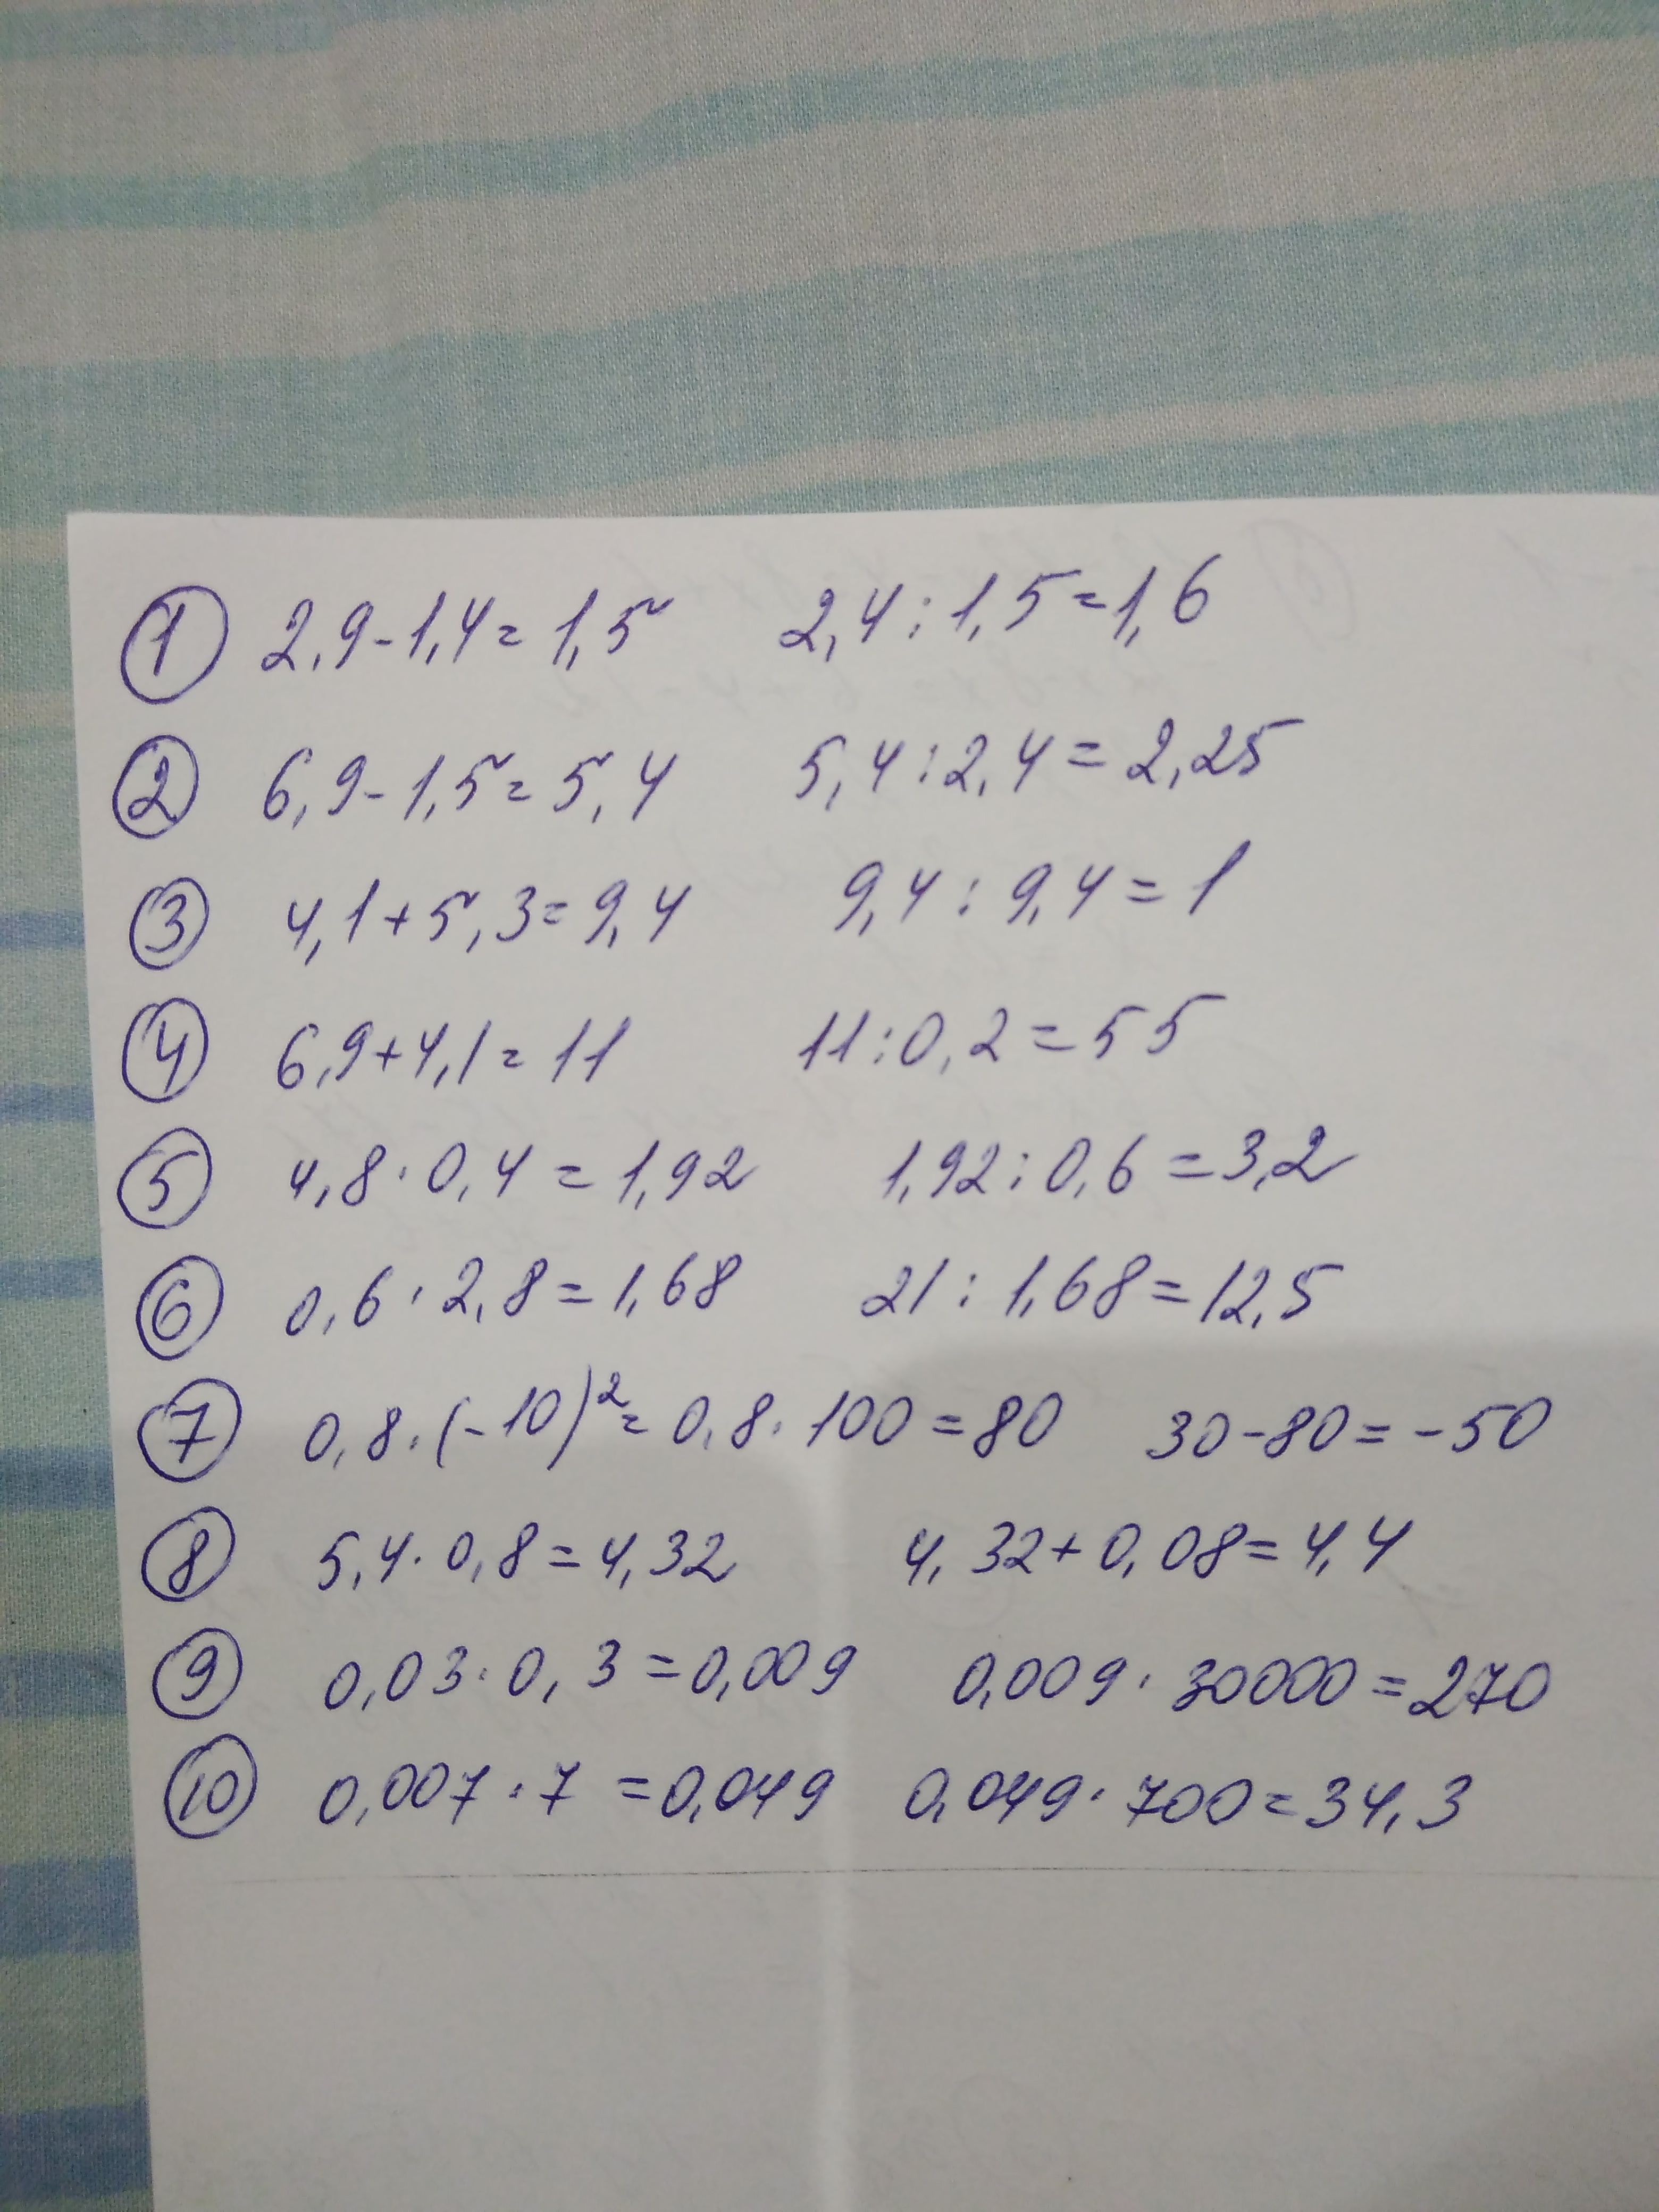 1 2,9-1,4=1,5 2,4:1,5=1,6
2 6,9-1,5=5,4 5,4:2,4=2,25
3 4,1+5,3=9,4 9,4:9,4=1
4 6,9+4,1=11 11:0,2=55
5 4,8·0,4=1,92 1,92:0,6=3,2
6 0,6·2,8=1,68 21:1,68=12,5
7 0,8·(-10)²=0,8·100=80 30-80=-50
8 5,4·0,8=4,32 4,32+0,08=4,4
9 0,03·0,3=0,009 0,009·30000=270
10 0,007·7=0,049 0,049·700=34,3